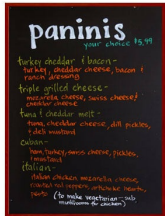 paninis
your choice $5,99
turkey cheddar & bacon-
turkey, cheddar cheese, bacon &
ranch dressing
triple grilled cheese-
mozzarella cheese, swiss cheese &
cheddar cheese
tuna & cheddar melt-
tuna, cheddar cheese, dill pickles,
& deli mustard
cuban-
ham, turkey, swiss cheese, pickles,
& mustard
italian-
italian chicken, mozzarella cheese,
roasted red peppers, artichoke hearts,
pesto
(to make vegetarian - sub
mushrooms for chicken)